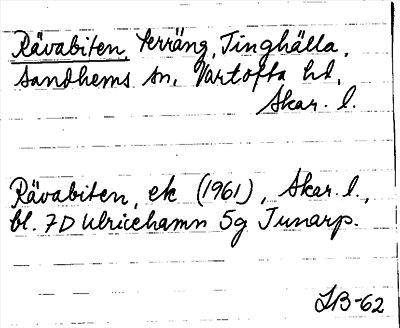 Rävabiten, terräng, Tinghälla,
Sandhems sn, Vartofta hd,
Skar. l.
Rävabiten, ek (1961), Skar. l.,
bl. 7D Ulricehamn 5g Junarp.
LB-62